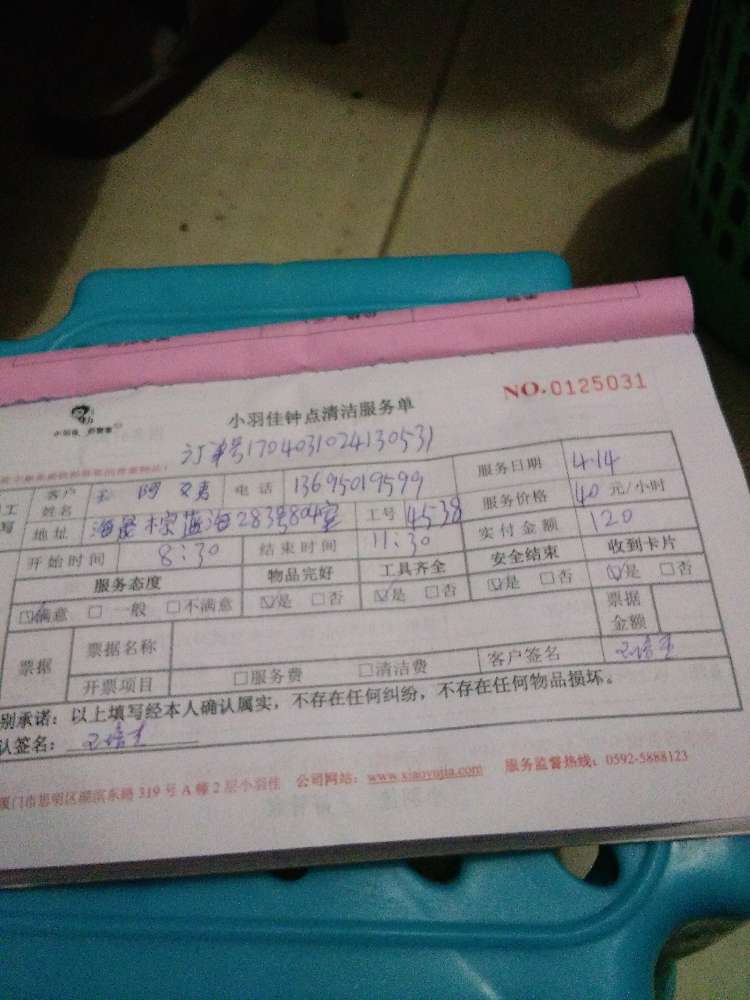 小羽佳钟点清洁服务单 NO.0125031
订单号170403102413053​1
客户姓名 阿 电话 13695019599 服务日期 4.14
地址 283号804室 工号 4538 服务价格 40 元/小时
开始时间 8:30 结束时间 11:30 实付金额 120
服务态度 物品完好 工具齐全 安全结束 收到卡片
☑满意 □一般 □不满意 ☑是 □否 ☑是 □否 ☑是 □否 ☑是 □否
票据 票据名称 票据金额
开票项目 □服务费 □清洁费 客户签名
别承诺：以上填写经本人确认属实，不存在任何纠纷，不存在任何物品损坏。
认签名：
厦门市思明区湖滨东路 319 号 A 幢 2 层小羽佳 公司网站：www.xiaoyujia.com 服务监督热线：0592-5888123